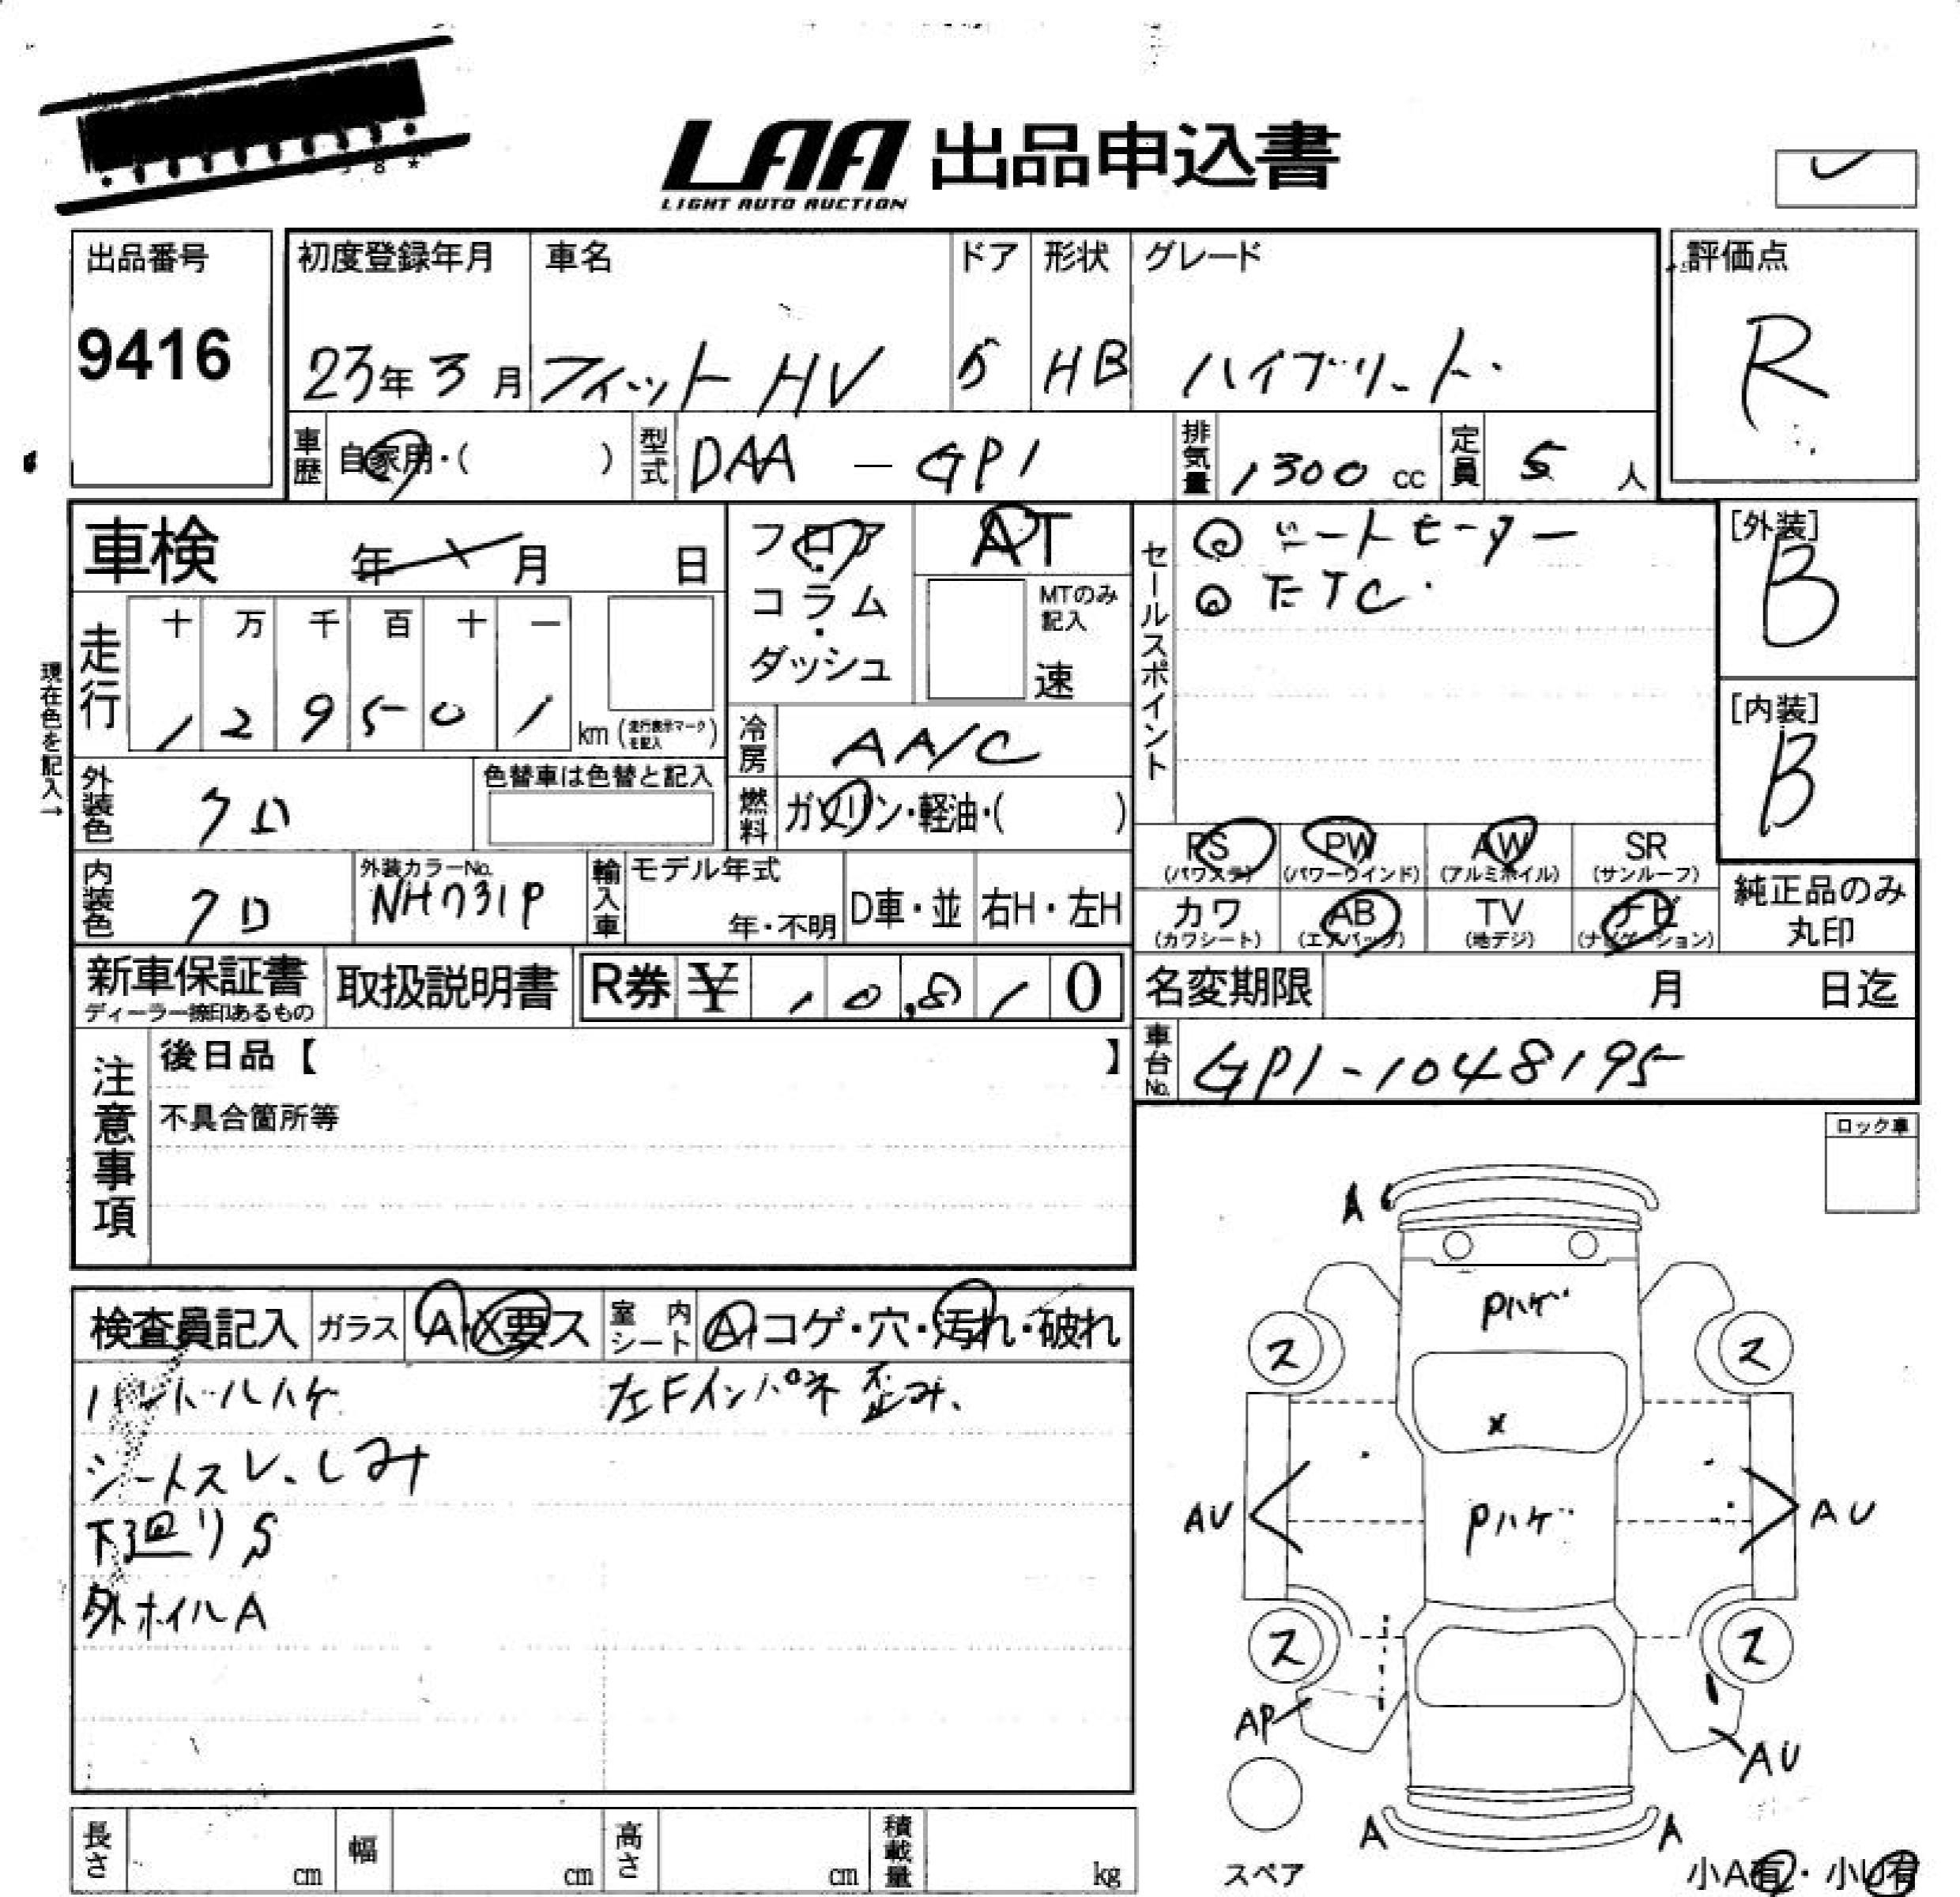 LAA 出品申込書
LIGHT AUTO AUCTION
出品番号
9416
初度登録年月 車名 ドア 形状 グレード
23年3月 フィット HV 5 HB ハイブリット
評価点
R
車歴 自家用・( ) 型式 DAA - GP1 排気量 1300 cc 定員 5 人
車検 年 月 日
フロア・コラム・ダッシュ
AT
MTのみ記入
速
セールスポイント
◎ シートヒーター
◎ ETC.
[外装]
B
[内装]
B
現在色を記入→
走行 十 万 千 百 十 一
1 2 9 5 0 1 km (走行表示マークを記入)
冷房 AA/C
外装色 クロ
色替車は色替と記入
燃料 ガソリン・軽油・( )
PS (パワステ) PW (パワーウインド) AW (アルミホイル) SR (サンルーフ)
カワ (カワシート) AB (エアバッグ) TV (地デジ) ナビ (ナビゲーション)
純正品のみ丸印
内装色 クロ
外装カラーNo. NH731P
輸入車 モデル年式 年・不明 D車・並 右H・左H
新車保証書 ディーラー捺印あるもの
取扱説明書
R券 ¥ 10,810
名変期限 月 日迄
車台No. GP1-1048195
注意事項
後日品【 】
不具合箇所等
ロック車
検査員記入 ガラス A・X要ス 室内シート A・コゲ・穴・汚れ・破れ
ハンドルハゲ 左Fインパネ歪み、
シートスレ、しみ
下廻りS
外ホイルA
A
Pハゲ
ス ス
X
AU Pハゲ AU
ス ス
AP
AU
A A
スペア
小A有・小U有
長さ cm 幅 cm 高さ cm 積載量 kg